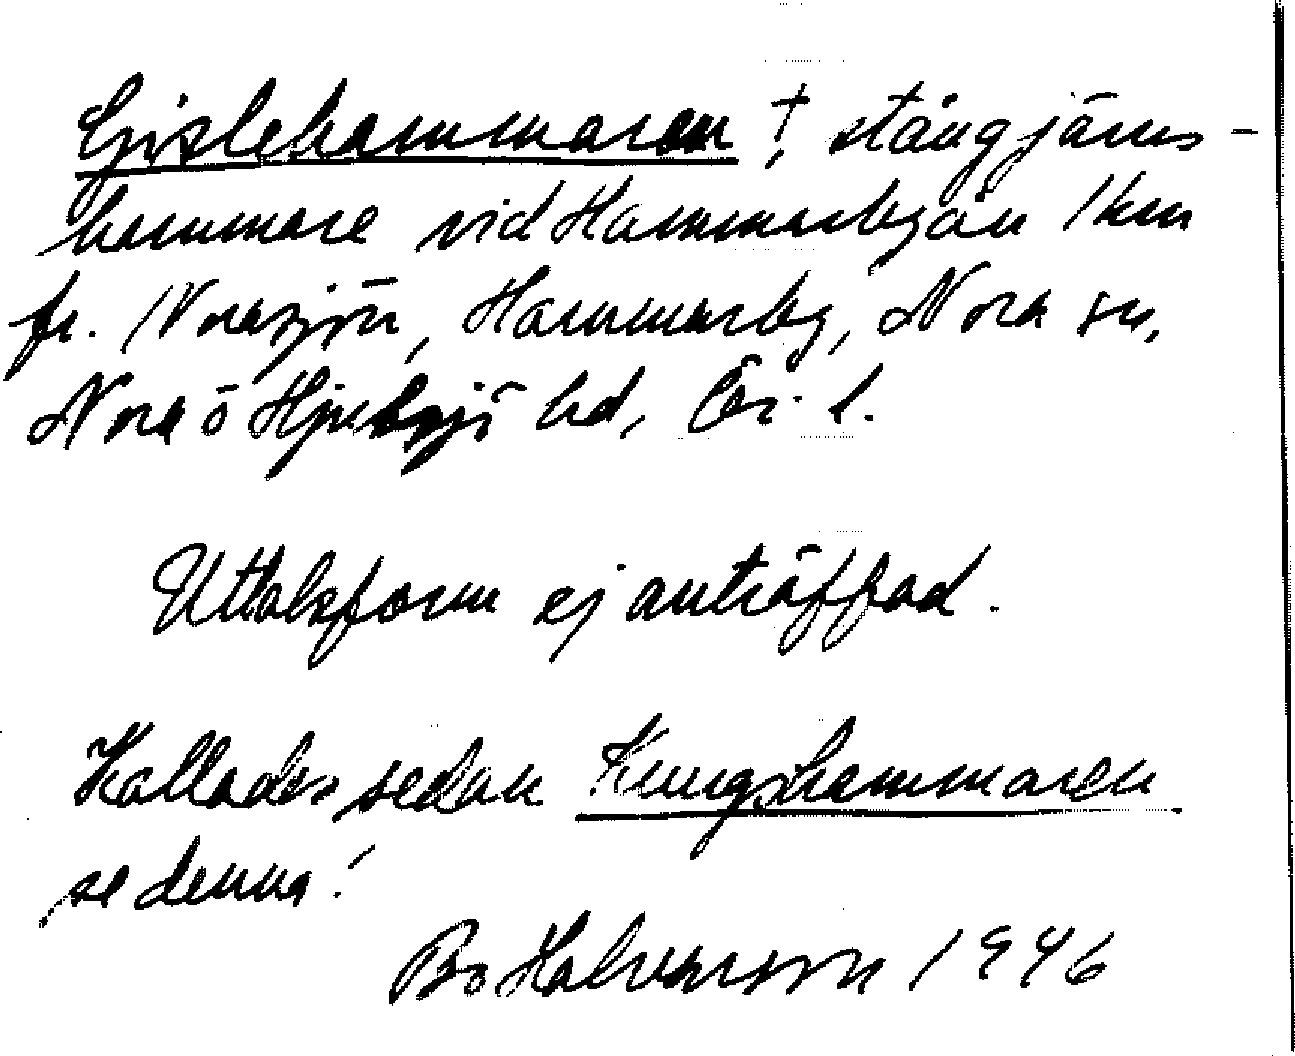 Gislehammaren †, stångjärns-
hammare vid Hammarbyån 1 km
fr. Norasjön, Hammarby, Nora sn,
Nora o Hjulsjö hd, Ör. l.
Uttalsform ej anträffad.
Kallades sedan Kungshammaren
se denna!
Bo Halvarsson 1946